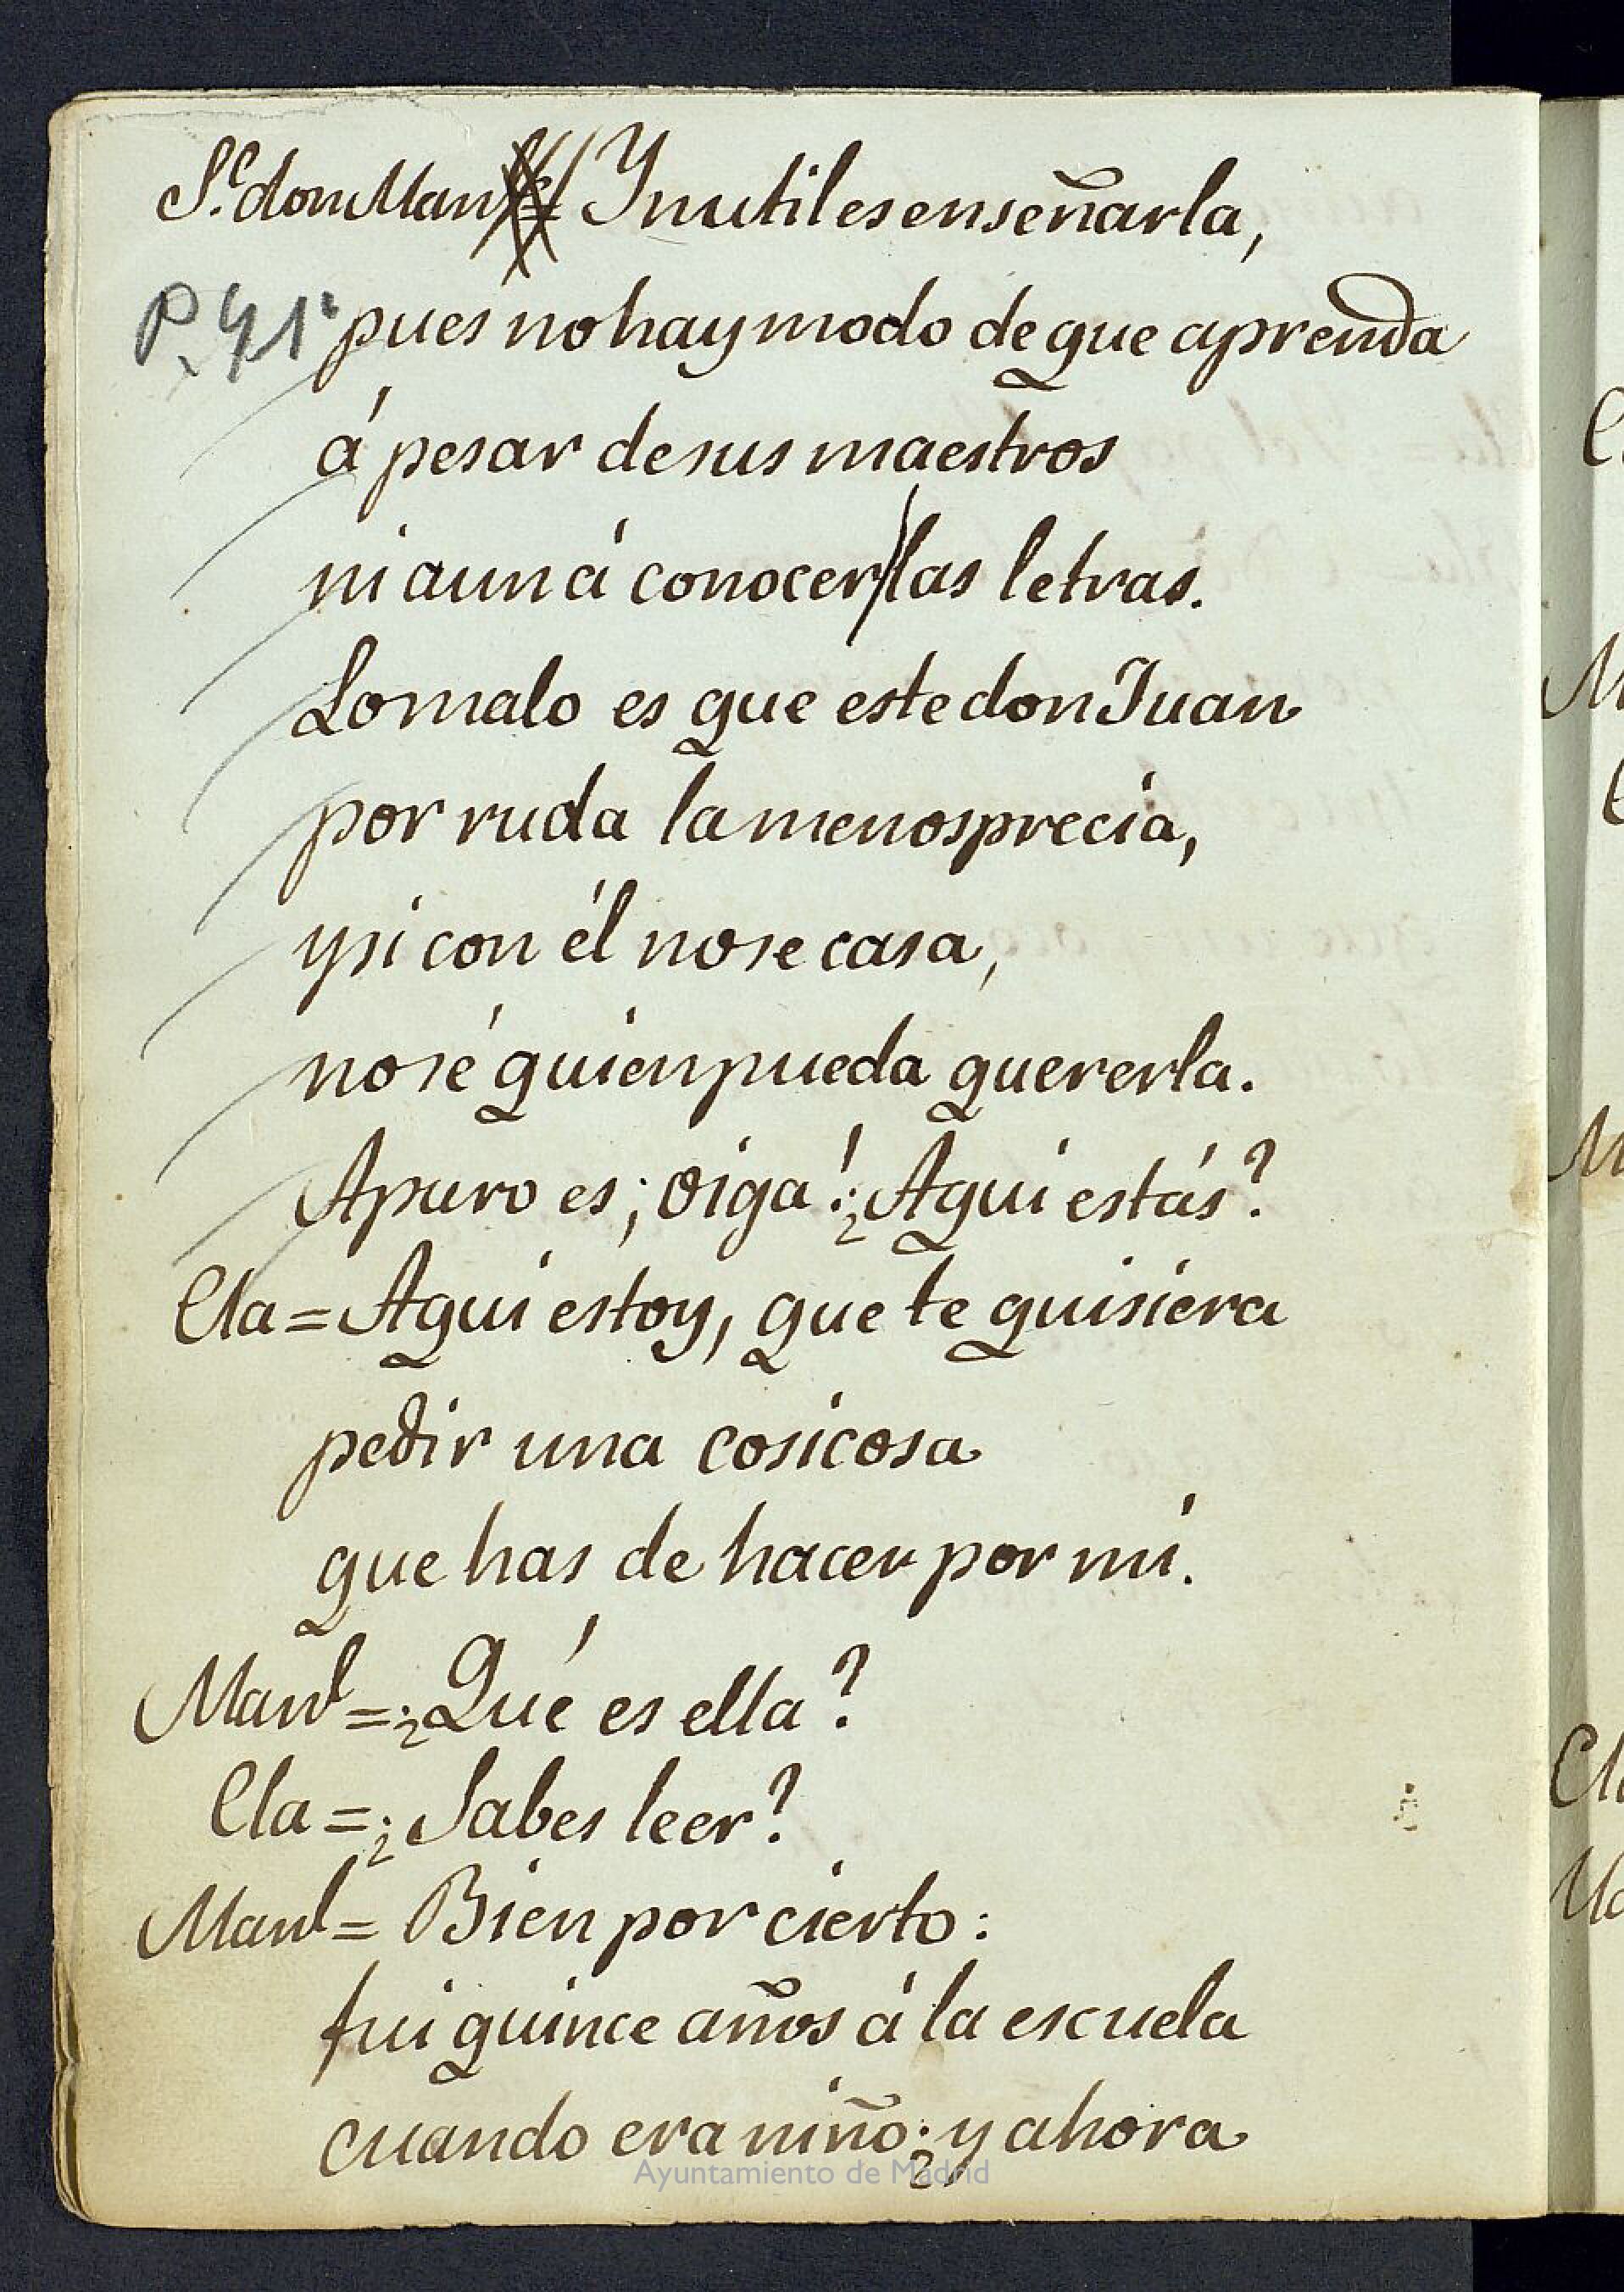 Sr. don Man = Inutil es enseñarla,
P. 41 pues no hay modo de que aprenda
á pesar de sus maestros
ni aun á conocer las letras.
Lo malo es que este don Juan
por ruda la menosprecia,
y si con él no se casa,
no sé quien pueda quererla.
Apuro es; oiga! ¿Aquí estás?
Cla = Aquí estoy, que te quisiera
pedir una cosicosa
que has de hacer por mí.
Manl = ¿Qué es ella?
Cla = ¿Sabes leer?
Manl = Bien por cierto:
fui quince años á la escuela
cuando era niño: ¿y ahora
Ayuntamiento de Madrid